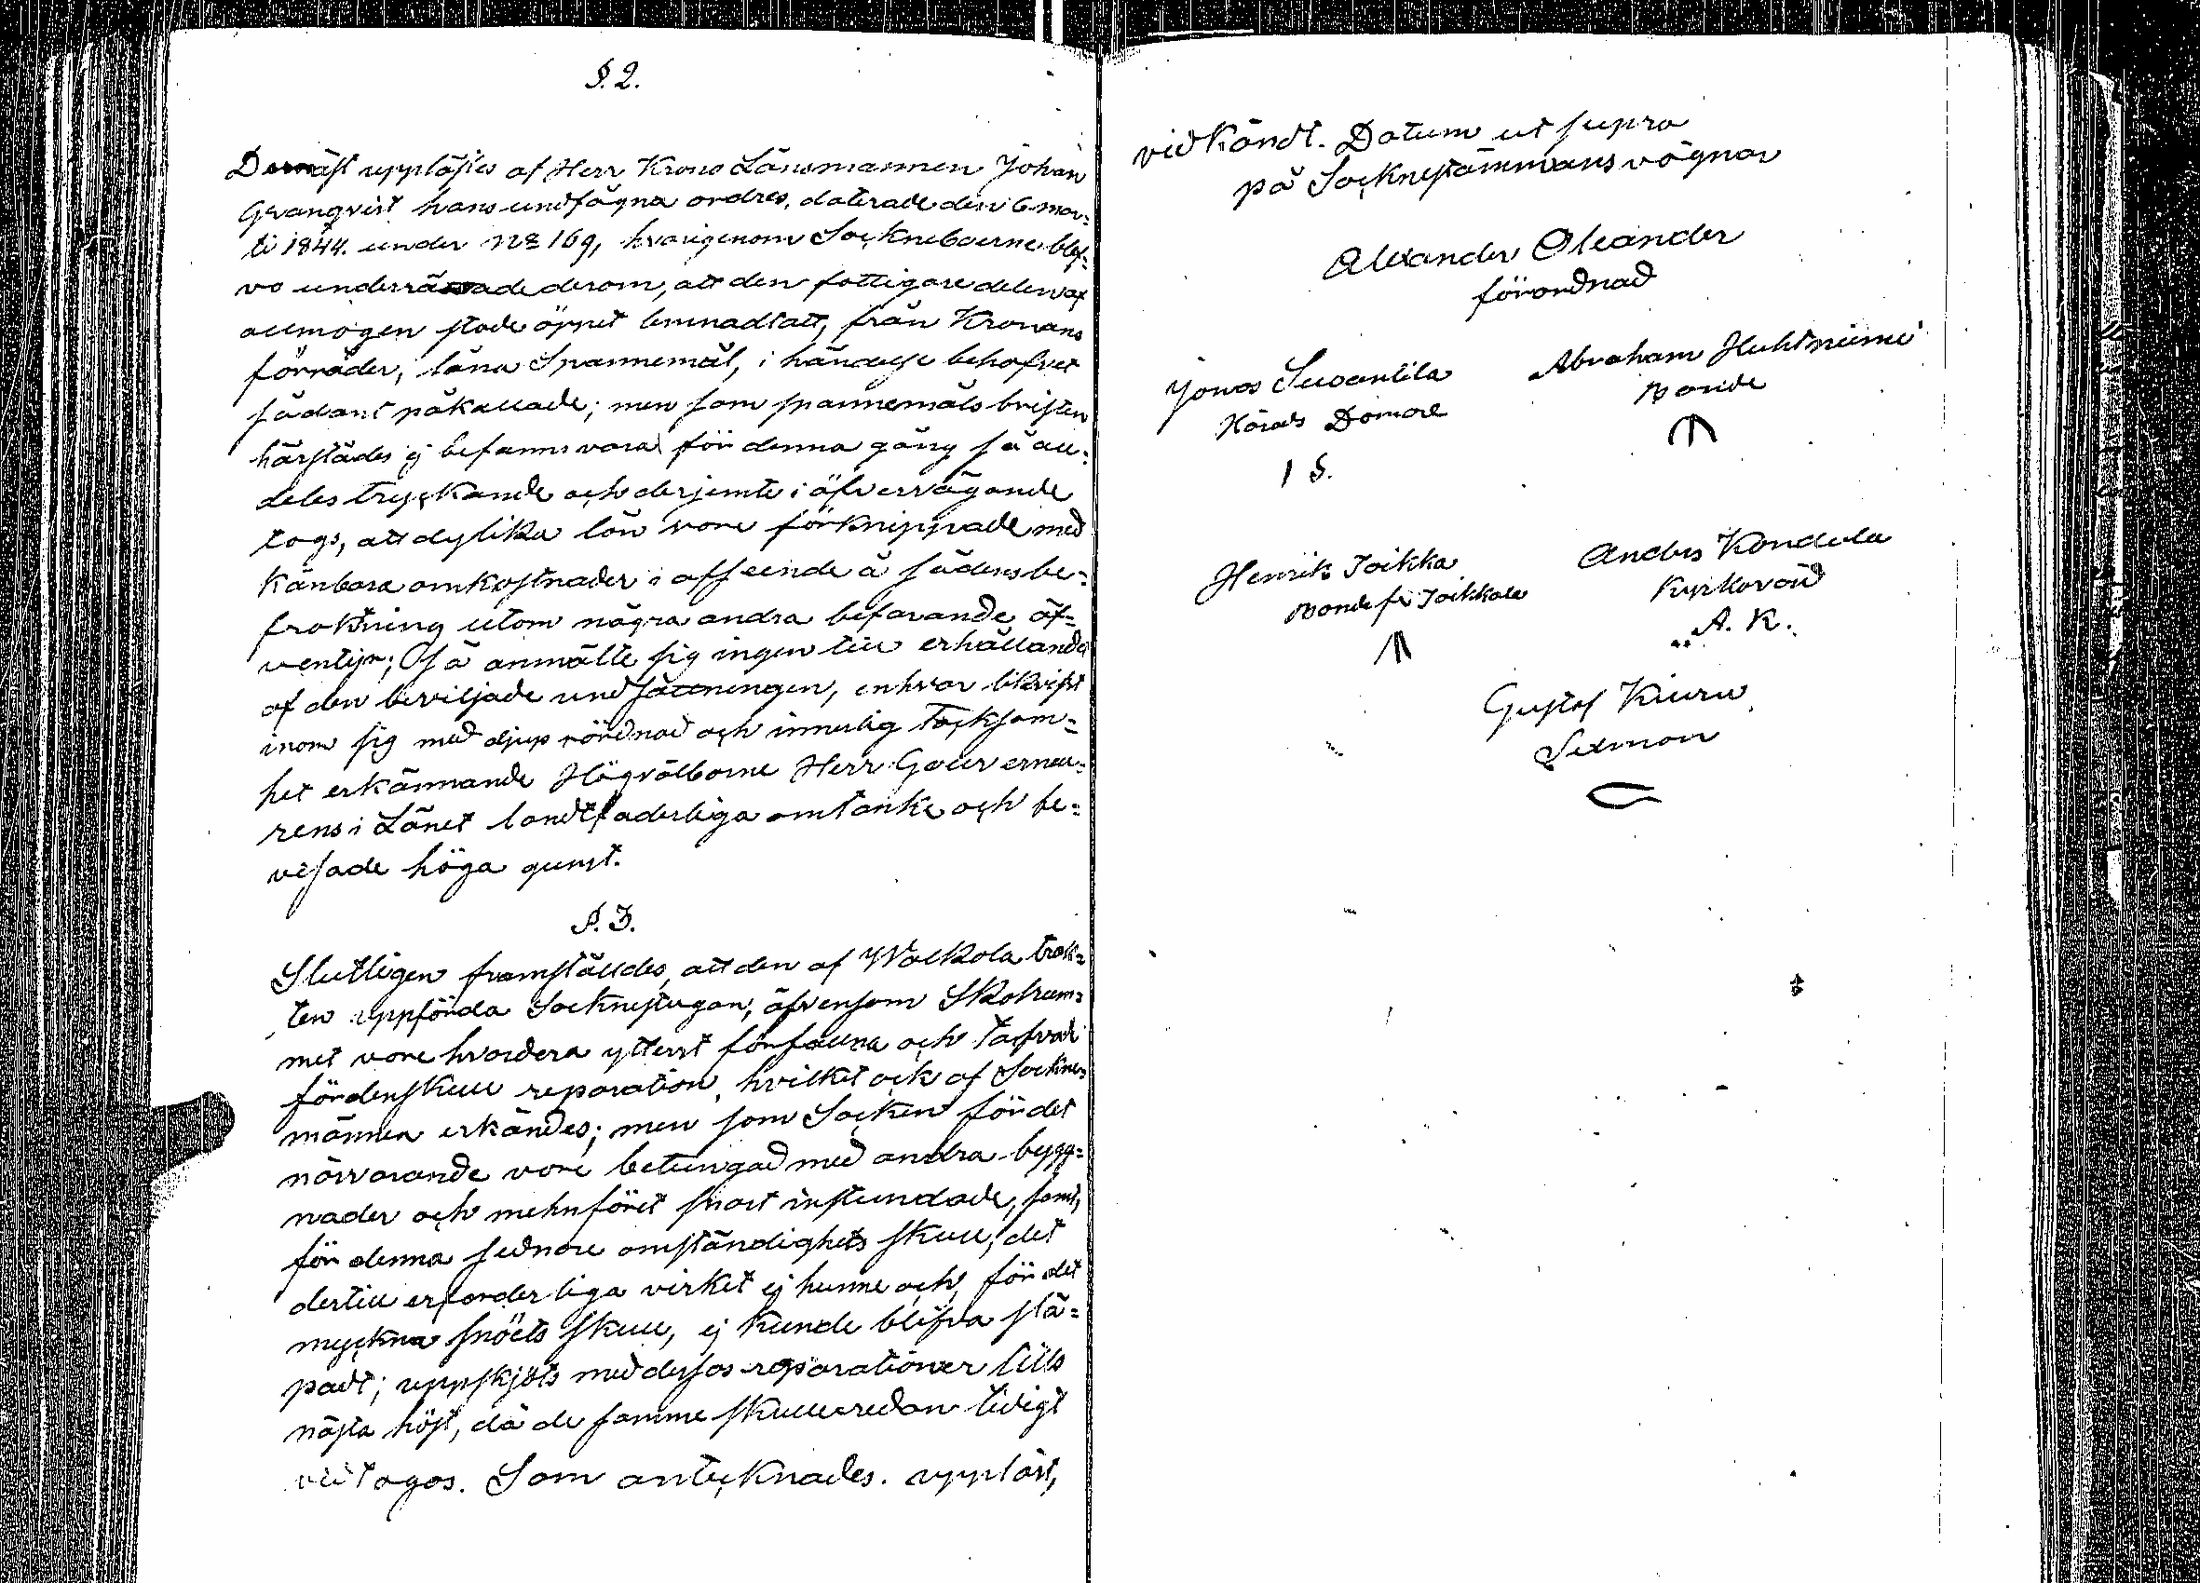 §. 2.
Dernäst upplästes af Herr Krono Länsmannen Johan
Granqvist hans undfågna ordres, daterade den 6 mar=
ti 1844. under No 169, hvarigenom Sockneboerne blef=
vo underrättade derom, att den fattigare delen af
allmogen stode öppet lemnadt att, från Kronans
förråder, låna Spannemål, i händelse behofvet
sådant påkallade; men som spannemåls bristen
härstädes ej befanns vara för denna gång så all=
deles tryckande och derjemte i öfvervägande
togs, att dylika lån vore förknippade med
känbara omkostnader i afseende å sädens be=
fraktning utom några andra befarande äf=
ventyr; Så anmälte sig ingen till erhållande
af den beviljade undsättningen, en hvar likvist
inom sig med djup vördnad och innerlig tacksam=
het erkännande Högvälborne Herr Gouverneu=
rens i Länet landtfaderliga omtanke och be=
visade höga gunst.
§. 3.
Slutligen framställdes, att den af Walkola trak=
ten uppförda Socknestugan, äfvensom Skolrum=
met vore hvardera ytterst förfallna och tarfvade
fördenskull reparation, hvilket ock af Sockne
männen erkändes; men som Socken för det
närvarande vore betungad med andra bygg=
nader och mehnföret snart instundade, samt,
för denna sednare omständighets skull, det
dertill erforderliga virket ej hunne och, för det
myckna snöets skull, ej kunde blifva slä=
padt; uppskjöts med dessas reparationer tills
nästa höst, då de samme skulle redan tidigt
vidtagas. Som antecknades. uppläst,
vidkändt. Datum ut supra
på Socknestämmans vägnar
Alexander Oleander
förordnad
Jonas Suoantila
Härads Domare
I S.
Abraham Huhtniemi
Bonde
Henrik Toikka
Bonde fr Toikkala
Anders Kondola
Kyrkovärd
A. K.
Gustaf Kiuru
Sexman